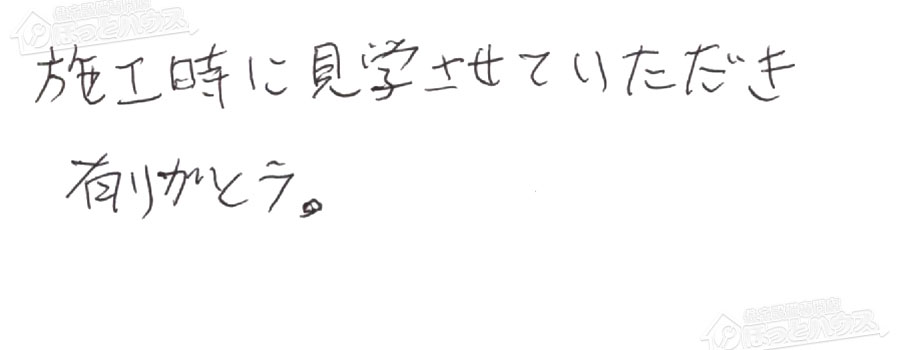 ほっとハウス
施工時に見学させていただき
有りがとう。
ほっとハウス